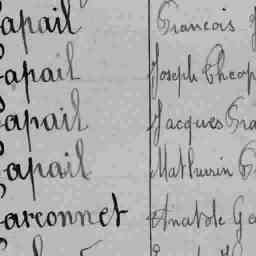 apail François
apail Joseph Theop
apail Jacques Fra
apail Mathurin
arconnet Anatole Ge